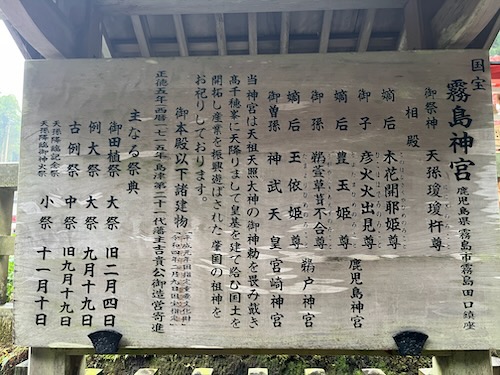 国宝
霧島神宮 鹿児島県霧島市霧島田口鎮座
御祭神 天孫瓊瓊杵尊
相殿
嫡后 木花開耶姫尊
御子 彦火火出見尊 鹿児島神宮
嫡后 豊玉姫尊
御孫 鵜葺草葺不合尊 鵜戸神宮
嫡后 玉依姫尊
御曽孫 神武天皇 宮崎神宮
当神宮は天祖天照大神の御神勅を畏み戴き
高千穂峯に天降りまして皇基を建て給ひ国土を
開拓し産業を振興遊ばされた肇国の祖神を
お祀りしております。
御本殿以下諸建物
正徳五年西暦一七一五年島津第二十一代藩主吉貴公御造営寄進
主なる祭典
御田植祭 大祭 旧二月四日
例大祭 大祭 九月十九日
古例祭 中祭 旧九月十九日
天孫降臨記念祭
天孫降臨御神火祭 小祭 十一月十日